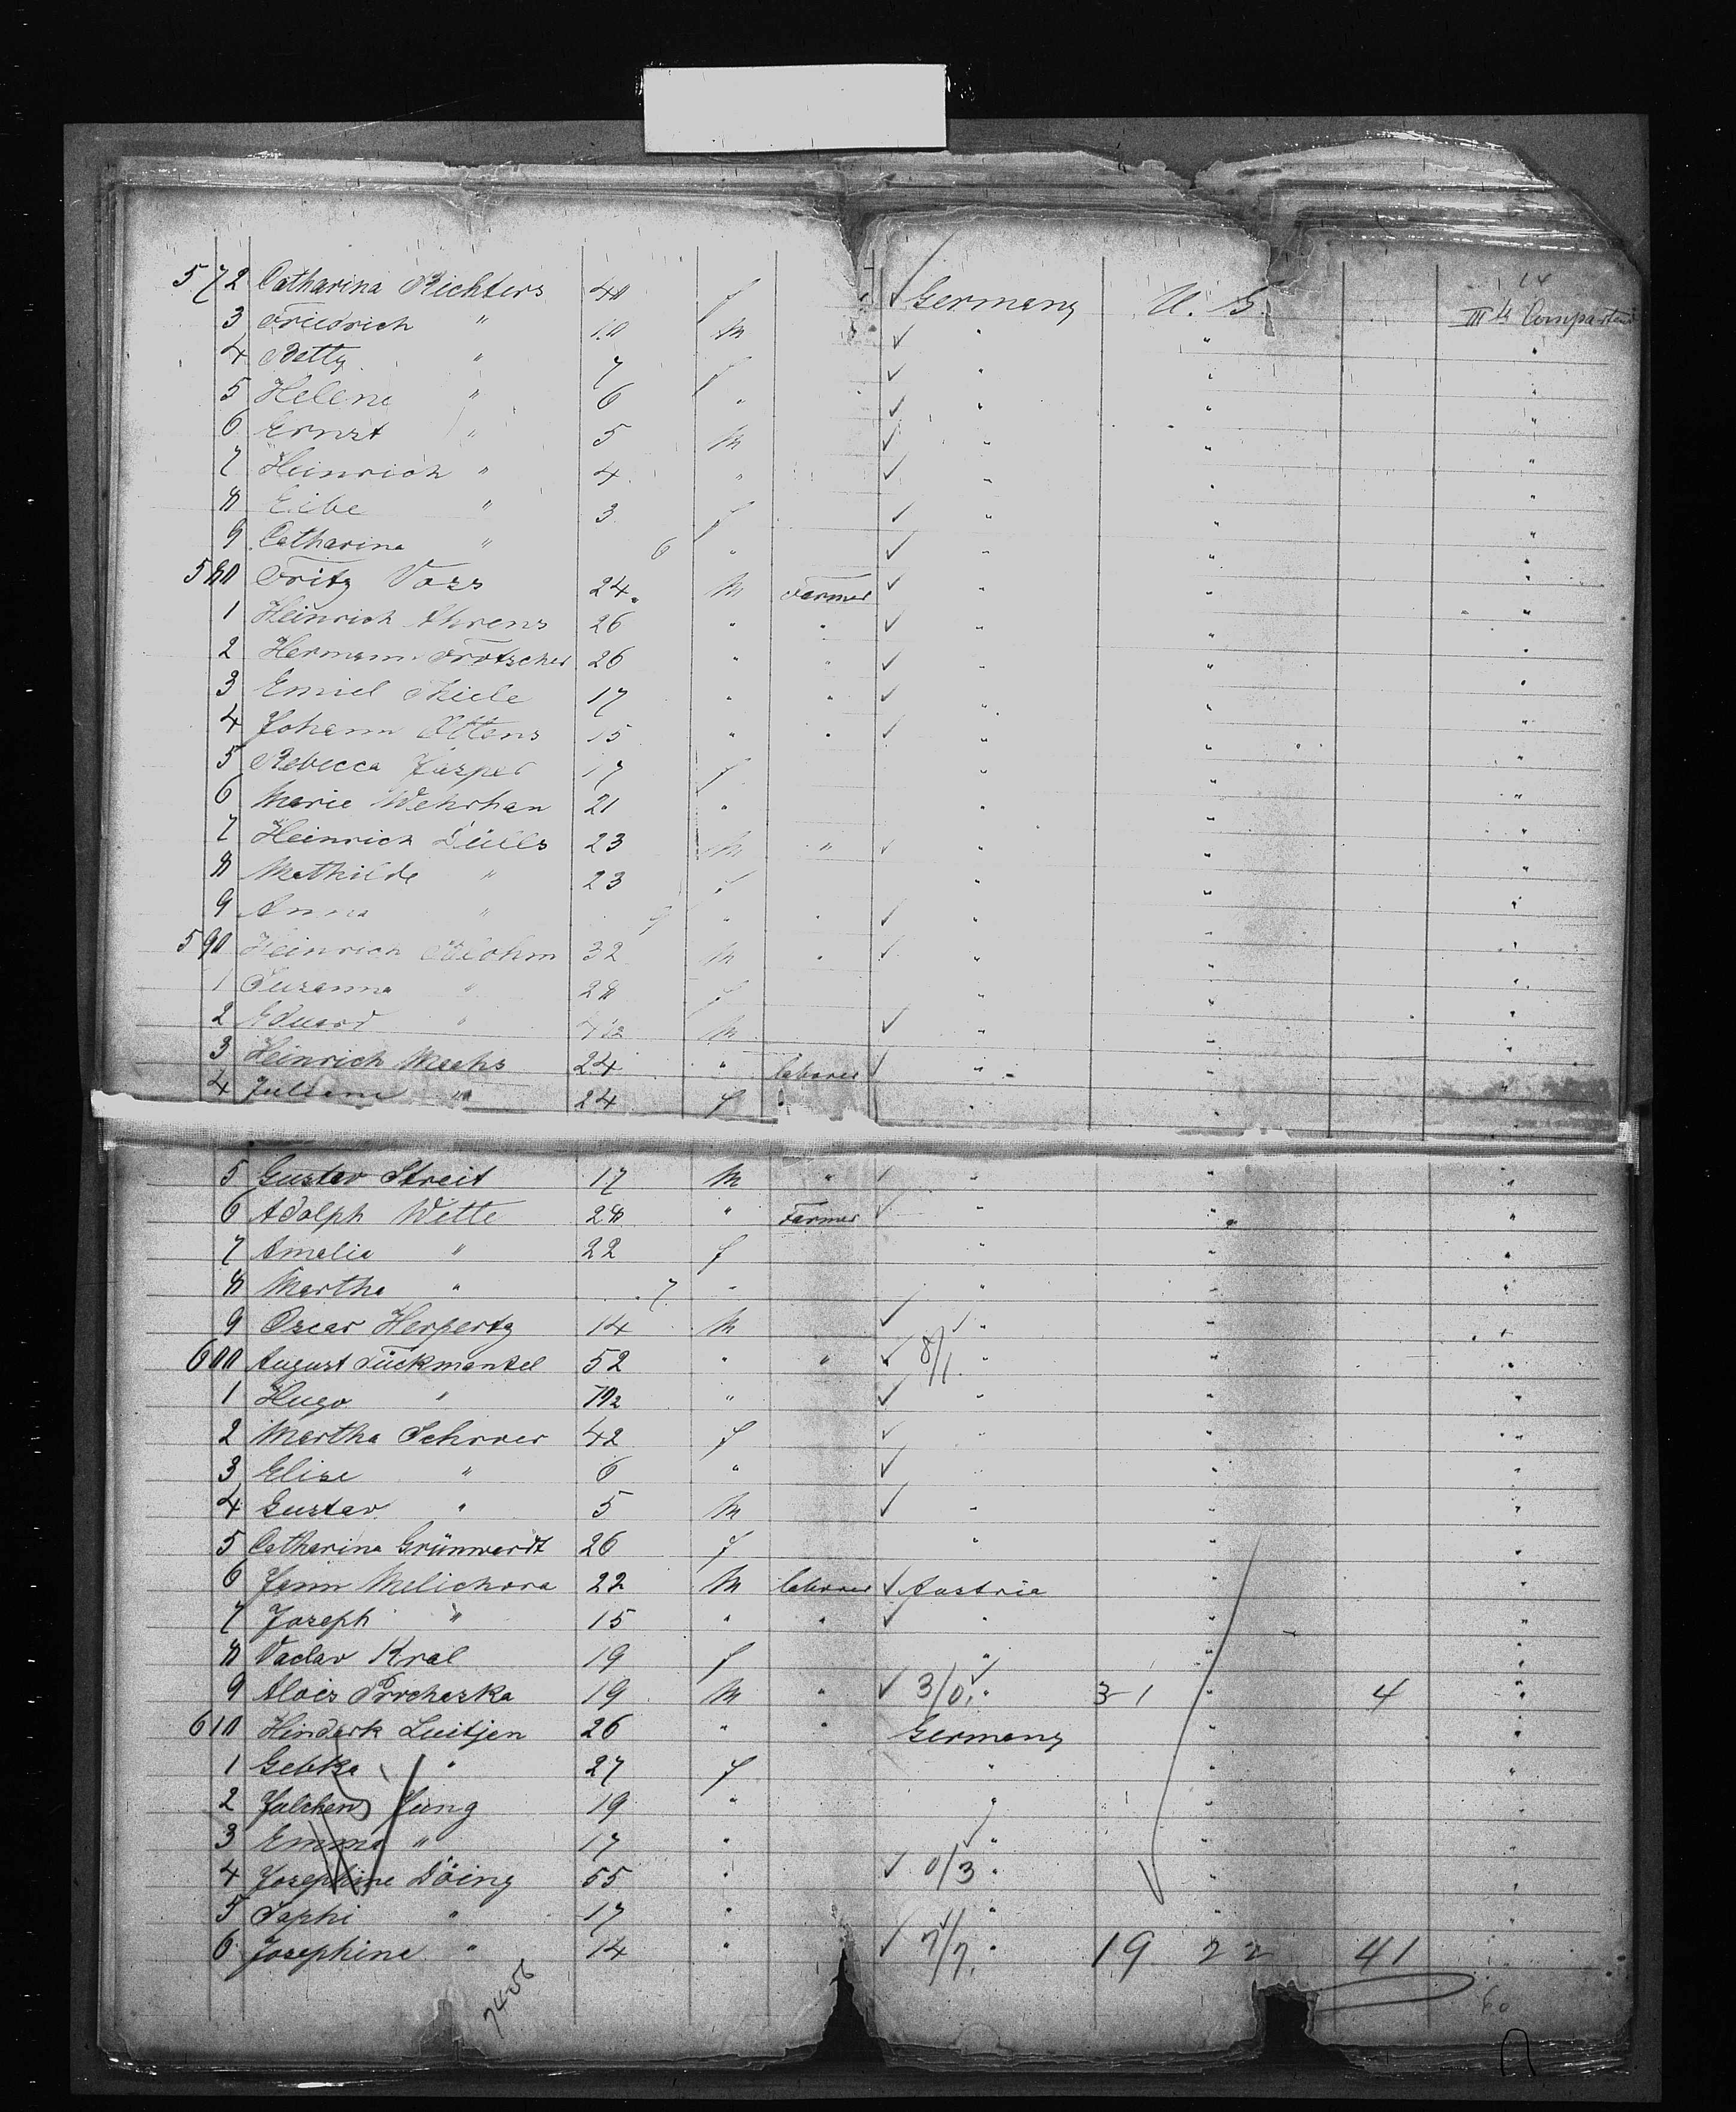 14
572 Catharina Richters 40 f ✓ Germany U. S. III ts Compartm
3 Friedrich " 10 M ✓ " " "
4 Betty " 7 f ✓ " " "
5 Helene " 6 " ✓ " " "
6 Ernst " 5 M ✓ " " "
7 Heinrich " 4 " ✓ " " "
8 Eibe " 3 f ✓ " " "
9 Catharina " 6 " ✓ " " "
580 Fritz Voss 24 M Farmer ✓ " " "
1 Heinrich Ahrens 26 " " ✓ " " "
2 Hermann Frotscher 26 " " ✓ " " "
3 Emiel Thiele 17 " " ✓ " " "
4 Johann Ottens 15 " " ✓ " " "
5 Rebecca Jasper 17 f " " "
6 Marie Wehrhan 21 " " " "
7 Heinrich Dülls 23 M " ✓ " " "
8 Mathilde " 23 f " " "
9 Anna " 9 " " ✓ " " "
590 Heinrich Blohm 32 M " ✓ " " "
1 Susanna " 28 f " " "
2 Eduard " M ✓ " " "
3 Heinrich Mechs 24 " laborer ✓ " " "
4 Juliane " 24 f " " "
5 Gustav Streit 17 M " ✓ " " "
6 Adolph Witte 28 " Farmer ✓ " " "
7 Amalia " 22 f " " "
8 Martha " 7 " " " "
9 Oscar Herpertz 14 M ✓ ✓ " " "
600 August Lückmantel 52 " " ✓ 8/1 " " "
1 Hugo " " ✓ " " "
2 Martha Schroer 42 f ✓ " " "
3 Elise " 6 " ✓ " " "
4 Gustav " 5 M ✓ " " "
5 Catharina Grünwardt 26 f " " "
6 Melichova 22 M laborer ✓ Austria " "
7 Joseph " 15 " " ✓ " " "
8 Vaclav Kral 19 f " " "
9 Alois Prochaska 19 M " ✓ 3/0 " 3 1 " 4 "
610 Hinderk Luitjen 26 " " Germany " "
1 Gebka " 27 f " " "
2 Julchen Jung 19 " " " "
3 Emma " 17 " " " "
4 Josephine Döing 55 " ✓ 0/3 " " "
5 Sophi " 17 " " " "
6 Josephine " 14 " ✓ 7/7 " 19 22 41 "
60